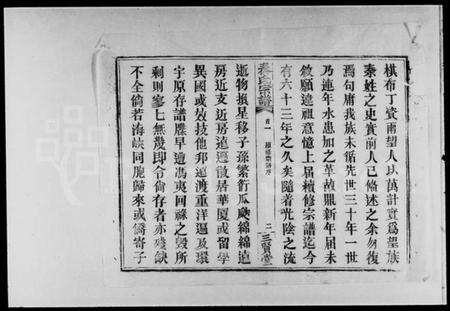 棋布丁資甫望人以萬計實為望族
秦姓之史實前人已條述之余勿復
焉句庸我族未循先世三十年一世
乃連年水患加之革故鼎新年屆未
敘願違祖意憶上屆續修宗譜迄今
有六十三年之久矣隨着光陰之流
秦氏宗譜
卷一
二
三賢堂
逝物損星移子孫繁衍瓜瓞綿綿遠
房近支近房遠遷散居華廈或留學
異國或效技他邦遠渡重洋遍及環
宇原存譜牒早遭馮夷回祿之毀所
剩則寥乚無幾即令倘存者亦殘缺
不全倘若海峽同胞歸來或僑寄子